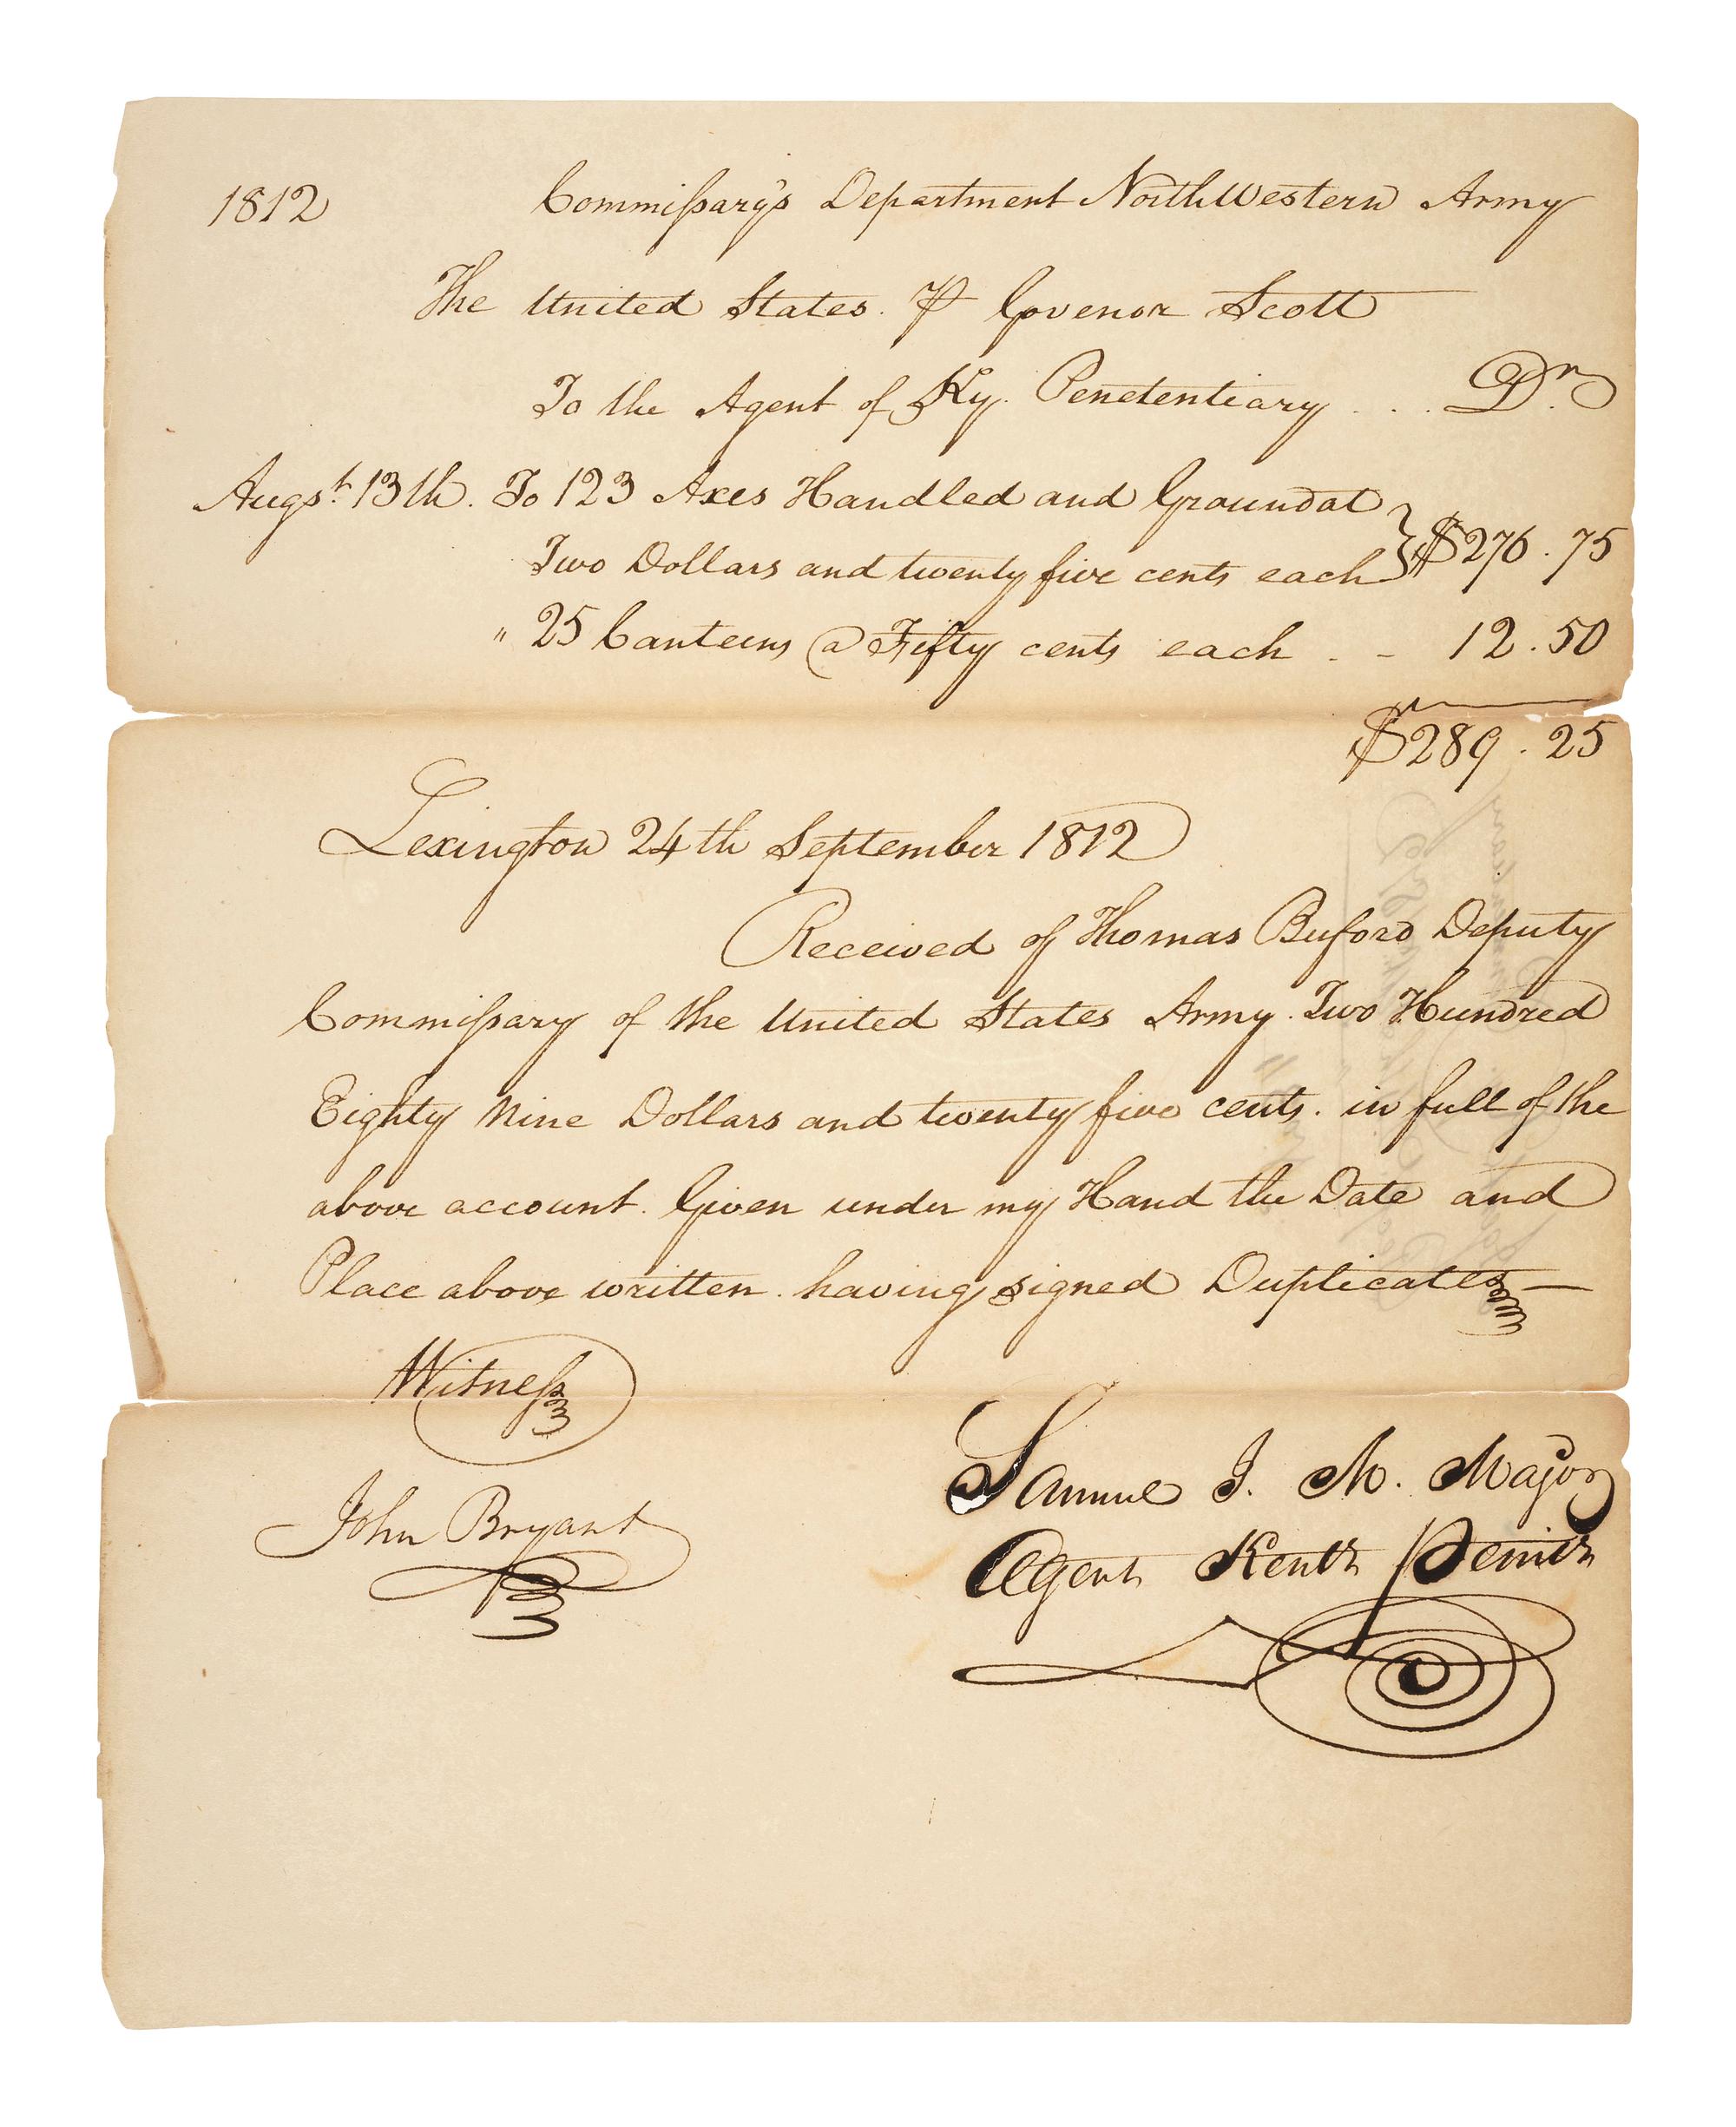 1812 Commissary's Department NorthWestern Army
The United States. ⅌ Govenor Scott
To the Agent of Ky. Penetentiary . . . Dr.
Augst. 13th. To 123 Axes Handled and Ground at
Two Dollars and twenty five cents each } $276.75
" 25 Canteens @ Fifty cents each . - 12.50
$289.25
Lexington 24th September 1812
Received of Thomas Buford Deputy
Commissary of the United States Army. Two Hundred
Eighty Nine Dollars and twenty five cents. in full of the
above account. Given under my Hand the Date and
Place above written. having signed Duplicates —
Witness
Samuel I. M. Major
John Bryant
Agent Kenty Penity